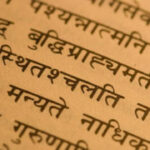 गसेव
पश्यन्नात्मनि
बुद्धिग्राह्यमत
स्थितश्चलति त
मन्यते नाधिक
गुरुणापि